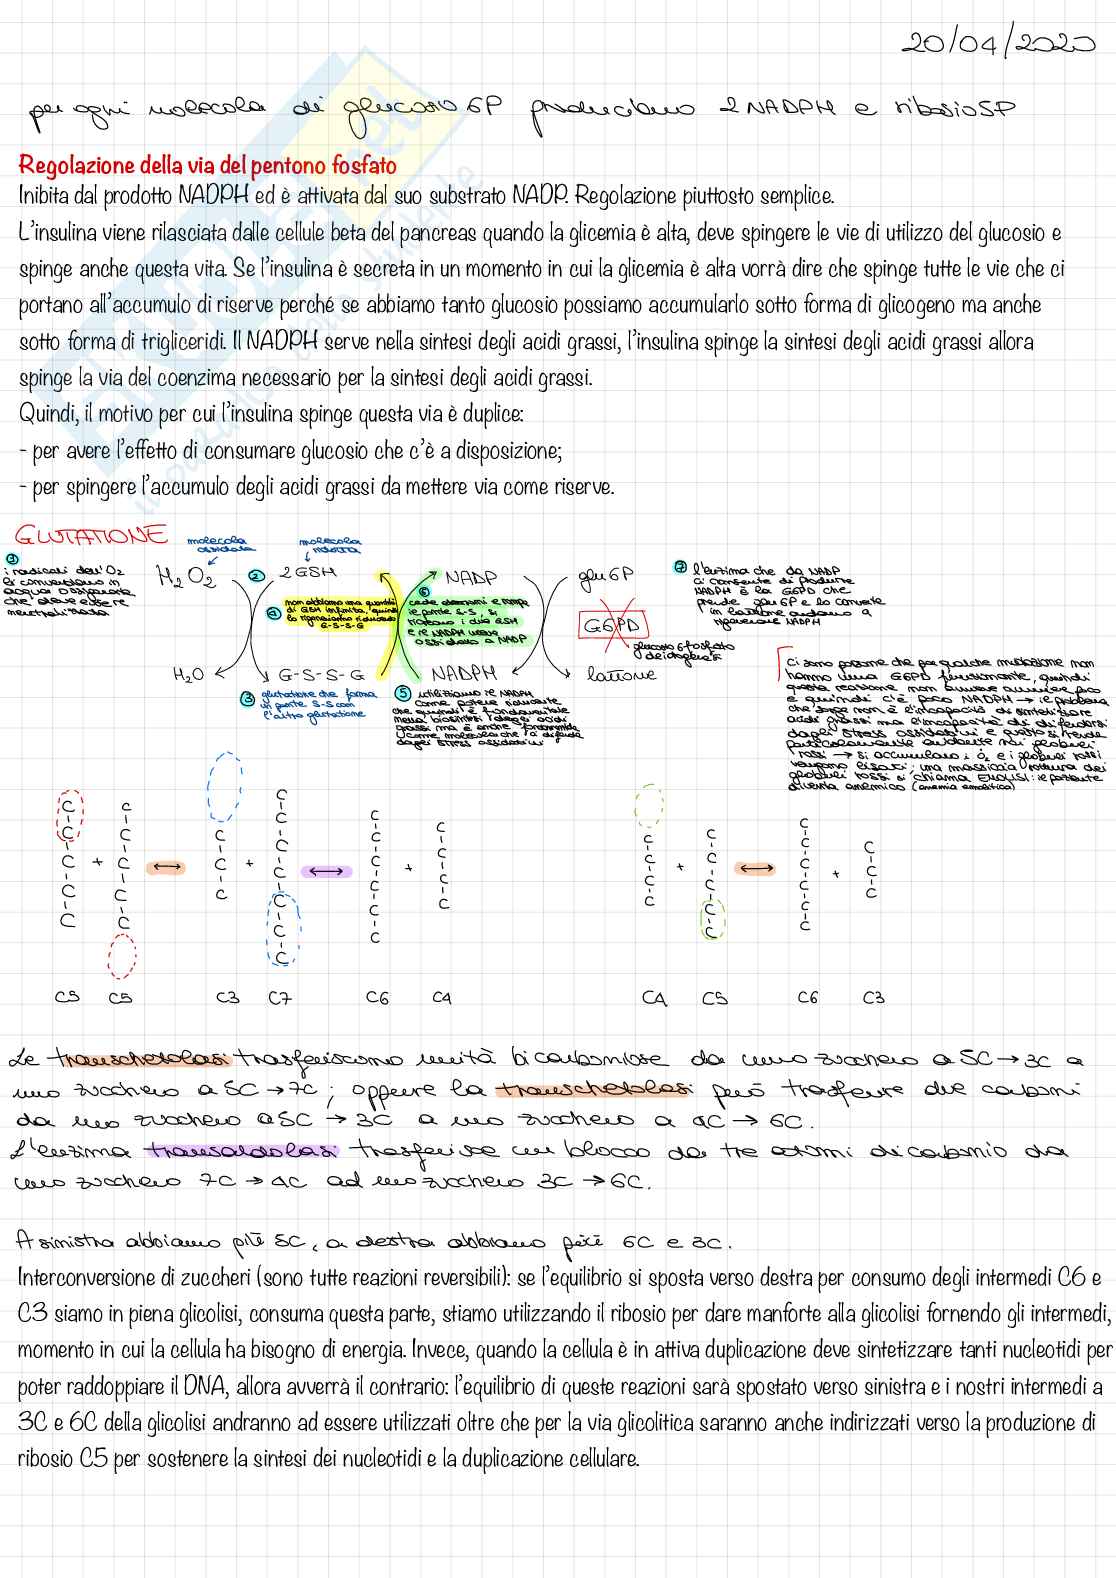 20/04/2020
per ogni molecola di glucosio 6P produciamo 2 NADPH e ribosio5P
Regolazione della via del pentono fosfato
Inibita dal prodotto NADPH ed è attivata dal suo substrato NADP. Regolazione piuttosto semplice.
L'insulina viene rilasciata dalle cellule beta del pancreas quando la glicemia è alta, deve spingere le vie di utilizzo del glucosio e
spinge anche questa vita. Se l'insulina è secreta in un momento in cui la glicemia è alta vorrà dire che spinge tutte le vie che ci
portano all'accumulo di riserve perché se abbiamo tanto glucosio possiamo accumularlo sotto forma di glicogeno ma anche
sotto forma di trigliceridi. Il NADPH serve nella sintesi degli acidi grassi, l'insulina spinge la sintesi degli acidi grassi allora
spinge la via del coenzima necessario per la sintesi degli acidi grassi.
Quindi, il motivo per cui l'insulina spinge questa via è duplice:
- per avere l'effetto di consumare glucosio che c'è a disposizione;
- per spingere l'accumulo degli acidi grassi da mettere via come riserve.
GLUTATIONE
molecola
ossidata
molecola
ridotta
1
i radicali dell'O2
li convertiamo in
acqua ossigenata
che deve essere
neutralizzata
H2O2
2
2GSH
4
non abbiamo una quantità
di GSH infinita, quindi
lo rigeneriamo riducendo
G-S-S-G
NADP
6
cede elettroni e rompe
il ponte S-S, si
riformano i due GSH
e il NADPH viene
ossidato a NADP
glu6P
G6PD
glucosio 6 fosfato
deidrogenasi
7
l'enzima che da NADP
ci consente di produrre
NADPH è la G6PD che
prende glu6P e lo converte
in lattone andando a
rigenerare NADPH
H2O
G-S-S-G
NADPH
lattone
3
glutatione che forma
un ponte S-S con
l'altro glutatione
5
utilizziamo il NADPH
come potere riducente
che quindi è fondamentale
nella biosintesi degli acidi
grassi ma è anche fondamentale
come molecola che ci difende
dagli stress ossidativi
Ci sono persone che per qualche mutazione non
hanno una G6PD funzionante, quindi
questa reazione non avviene
e quindi c'è poco NADPH → il problema
che sorge non è l'incapacità di sintetizzare
acidi grassi ma l'incapacità di difendersi
dagli stress ossidativi e questo si rende
particolarmente evidente nei globuli
rossi → si accumulano i O2 e i globuli rossi
vengono lisati; una massiccia rottura dei
globuli rossi si chiama EMOLISI: il paziente
diventa anemico (anemia emolitica)
C-C-C-C-C + C-C-C-C-C ↔ C-C-C + C-C-C-C-C-C-C ↔ C-C-C-C-C-C + C-C-C-C
C-C-C-C + C-C-C-C-C ↔ C-C-C-C-C-C + C-C-C
C5 C5 C3 C7 C6 C4 C4 C5 C6 C3
Le transchetolasi trasferiscono unità bicarboniose da uno zucchero a 5C → 3C a
uno zucchero a 5C → 7C; oppure la transchetolasi può trasferire due carboni
da uno zucchero a 5C → 3C a uno zucchero a 4C → 6C.
L'enzima transaldolasi trasferisce un blocco da tre atomi di carbonio da
uno zucchero 7C → 4C ad uno zucchero 3C → 6C.
A sinistra abbiamo più 5C, a destra abbiamo più 6C e 3C.
Interconversione di zuccheri (sono tutte reazioni reversibili): se l'equilibrio si sposta verso destra per consumo degli intermedi C6 e
C3 siamo in piena glicolisi, consuma questa parte, stiamo utilizzando il ribosio per dare manforte alla glicolisi fornendo gli intermedi,
momento in cui la cellula ha bisogno di energia. Invece, quando la cellula è in attiva duplicazione deve sintetizzare tanti nucleotidi per
poter raddoppiare il DNA, allora avverrà il contrario: l'equilibrio di queste reazioni sarà spostato verso sinistra e i nostri intermedi a
3C e 6C della glicolisi andranno ad essere utilizzati oltre che per la via glicolitica saranno anche indirizzati verso la produzione di
ribosio C5 per sostenere la sintesi dei nucleotidi e la duplicazione cellulare.